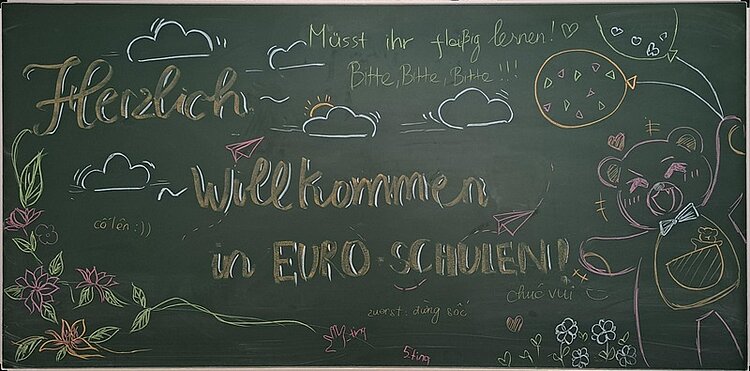 Müsst ihr fleißig lernen!
Bitte, Bitte, Bitte!!!
Herzlich
Willkommen
cố lên :))
in EURO-SCHULEN!
chúc vui
zuerst: đừng sốc
5.ting